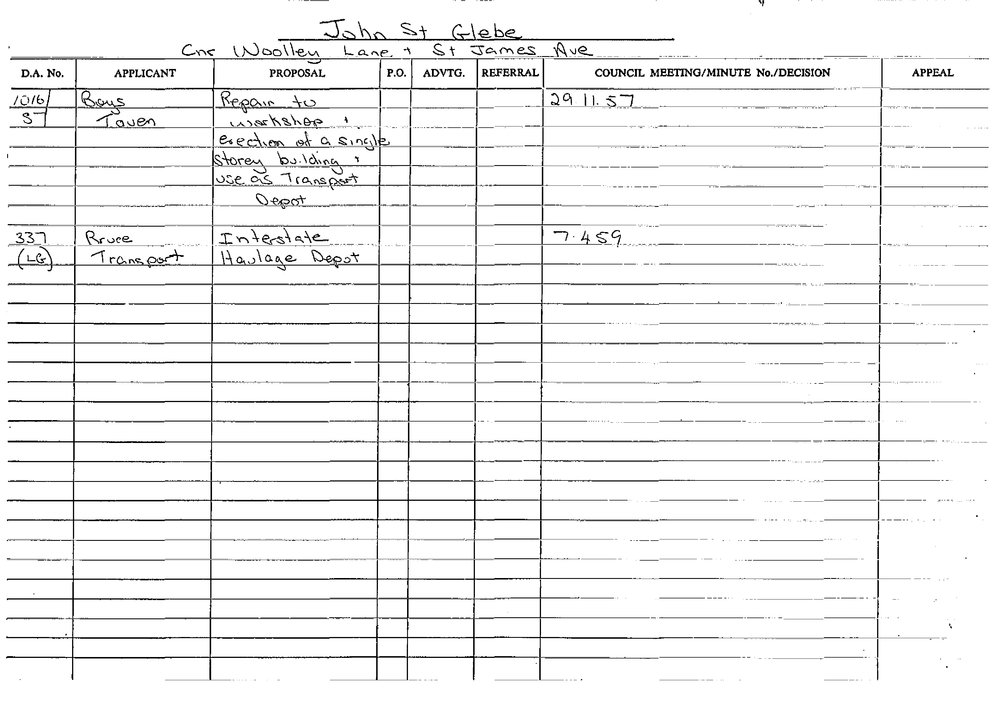 John St Glebe
Cnr Woolley Lane + St James Ave
D.A. No. APPLICANT PROPOSAL P.O. ADVTG. REFERRAL COUNCIL MEETING/MINUTE No./DECISION APPEAL
1016/ Boys Repair to 29 11.57
57 Town workshop +
erection of a single
storey building +
use as Transport
Depot
337 Bruce Interstate 7.459
(LG) Transport Haulage Depot